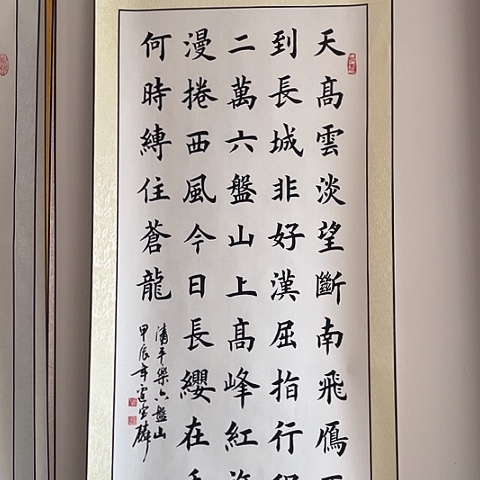 天髙雲淡望斷南飛鴈不
到長城非好漢屈指行程
二萬六盤山上髙峰紅
漫捲西風今日長纓在
何時縛住蒼龍
清平樂六盤山
甲辰年